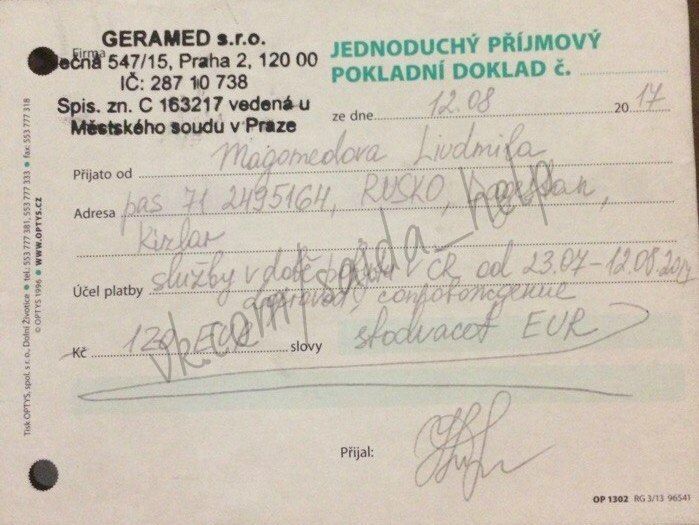 GERAMED s.r.o.
Firma
ečná 547/15, Praha 2, 120 00
IČ: 287 10 738
Spis. zn. C 163217 vedená u
Městského soudu v Praze
JEDNODUCHÝ PŘÍJMOVÝ
POKLADNÍ DOKLAD č.
ze dne 12.08 2017
Přijato od Magomedova Liudmila
Adresa pas 71 2495164, RUSKO, Dagestan,
Kizlar
Účel platby služby v době pobytu v ČR od 23.07-12.08.2017
doprovod,
Kč 120 EUR slovy stodvacet EUR
Přijal:
vk.com/saida_help
OP 1302 RG 3/13 96541
Tisk OPTYS, spol. s r.o., Dolní Životice • tel.: 553 777 381, 553 777 333 • fax: 553 777 318
© OPTYS 1996 • WWW.OPTYS.CZ